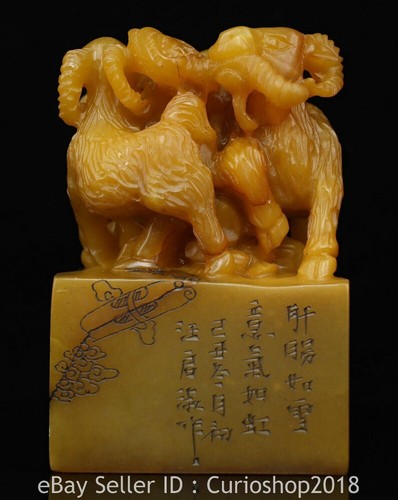 肝腸如雪
意氣如虹
己丑冬月初
汪启淑作
eBay Seller ID : Curioshop2018